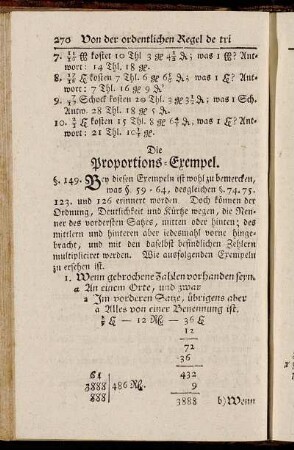 270 Von der ordentlichen Regel de tri
kostet 10 Thl. 3 ; was 1 ? Ant-
wort: 14 Thl. 18 gr.
kosten 7 Thl. 6 ; was 1 ? Ant-
wort: 7 Thl. 11 gr.
Schock kosten 20 Thl. ; was 1 Sch.
Antw. 28 Thl. 18 gr 5
kosten 15 Thl. 8 ; was 1 ? Ant-
wort: 21 Thl.
Die
Proportions-Exempel.
§. 149. Bey diesen Exempeln ist wohl zu bemercken,
was §. 59-64, desgleichen §. 74. 75.
123. und 126 erinnert worden. Doch können der
Ordnung, Deutlichkeit und Kürtze wegen, die Nen-
ner des vordersten Satzes, mitten oder hinten; des
mittlern und hinteren aber jedesmahl vorne hinge-
bracht, und mit den daselbst befindlichen Zehlern
multipliciret werden. Wie ausfolgenden Exempeln
zu ersehen ist.
1. Wenn gebrochene Zahlen vorhanden seyn.
a An einem Orte, und zwar
a Im vorderen Satze, übrigens aber
a Alles von einer Benennung ist.
— 12 — 36
12
72
36
432
3888 486 9
888 3888 b) Wenn